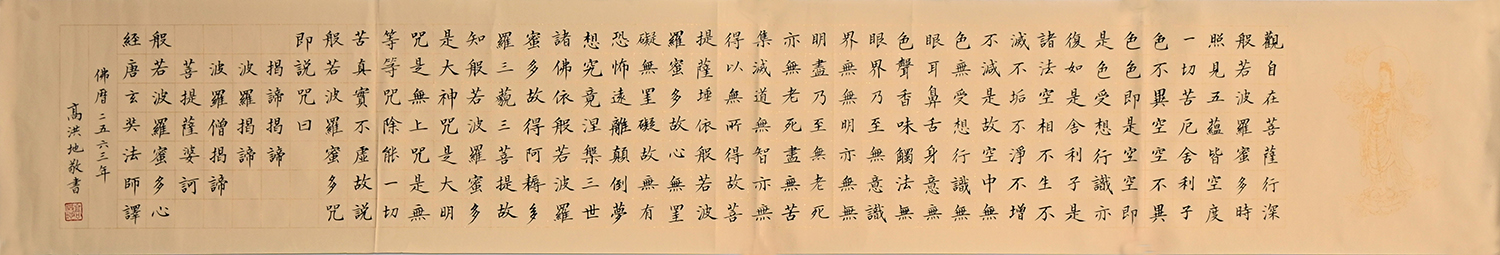 觀自在菩薩行深
般若波羅蜜多時
照見五蘊皆空度
一切苦厄舍利子
色不異空空不異
色色即是空空即
是色受想行識亦
復如是舍利子是
諸法空相不生不
滅不垢不淨不增
不減是故空中無
色無受想行識無
眼耳鼻舌身意無
色聲香味觸法無
眼界乃至無意識
界無無明亦無無
明盡乃至無老死
亦無老死盡無苦
集滅道無智亦無
得以無所得故菩
提薩埵依般若波
羅蜜多故心無罣
礙無罣礙故無有
恐怖遠離顛倒夢
想究竟涅槃三世
諸佛依般若波羅
蜜多故得阿耨多
羅三藐三菩提故
知般若波羅蜜多
是大神咒是大明
咒是無上咒是無
等等咒除能一切
苦真實不虛故說
般若波羅蜜多咒
即說咒曰
揭諦揭諦
波羅揭諦
波羅僧揭諦
菩提薩婆訶
般若波羅蜜多心
經唐玄奘法師譯
佛曆二五六三年
高洪地敬書